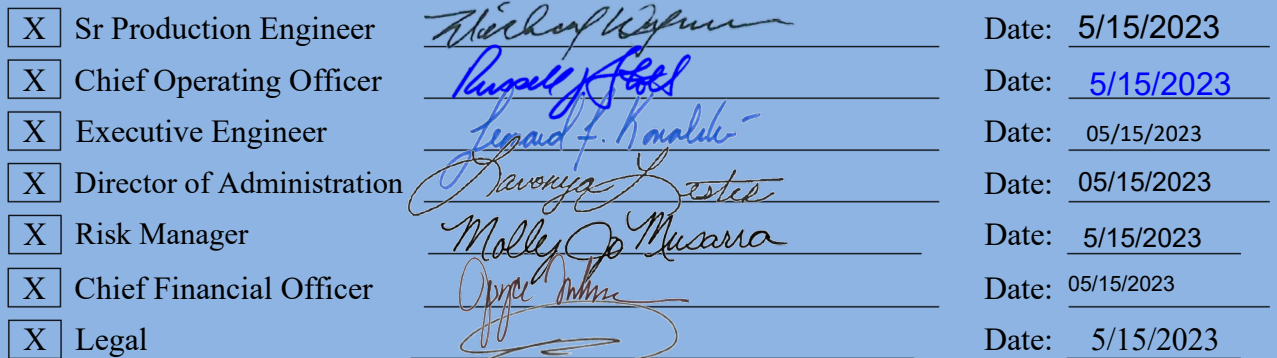 X Sr Production Engineer Michael Date: 5/15/2023
X Chief Operating Officer Russell J. Date: 5/15/2023
X Executive Engineer F. Date: 05/15/2023
X Director of Administration Lavonya Lester Date: 05/15/2023
X Risk Manager Molly Jo Musarra Date: 5/15/2023
X Chief Financial Officer Joyce Date: 05/15/2023
X Legal Date: 5/15/2023